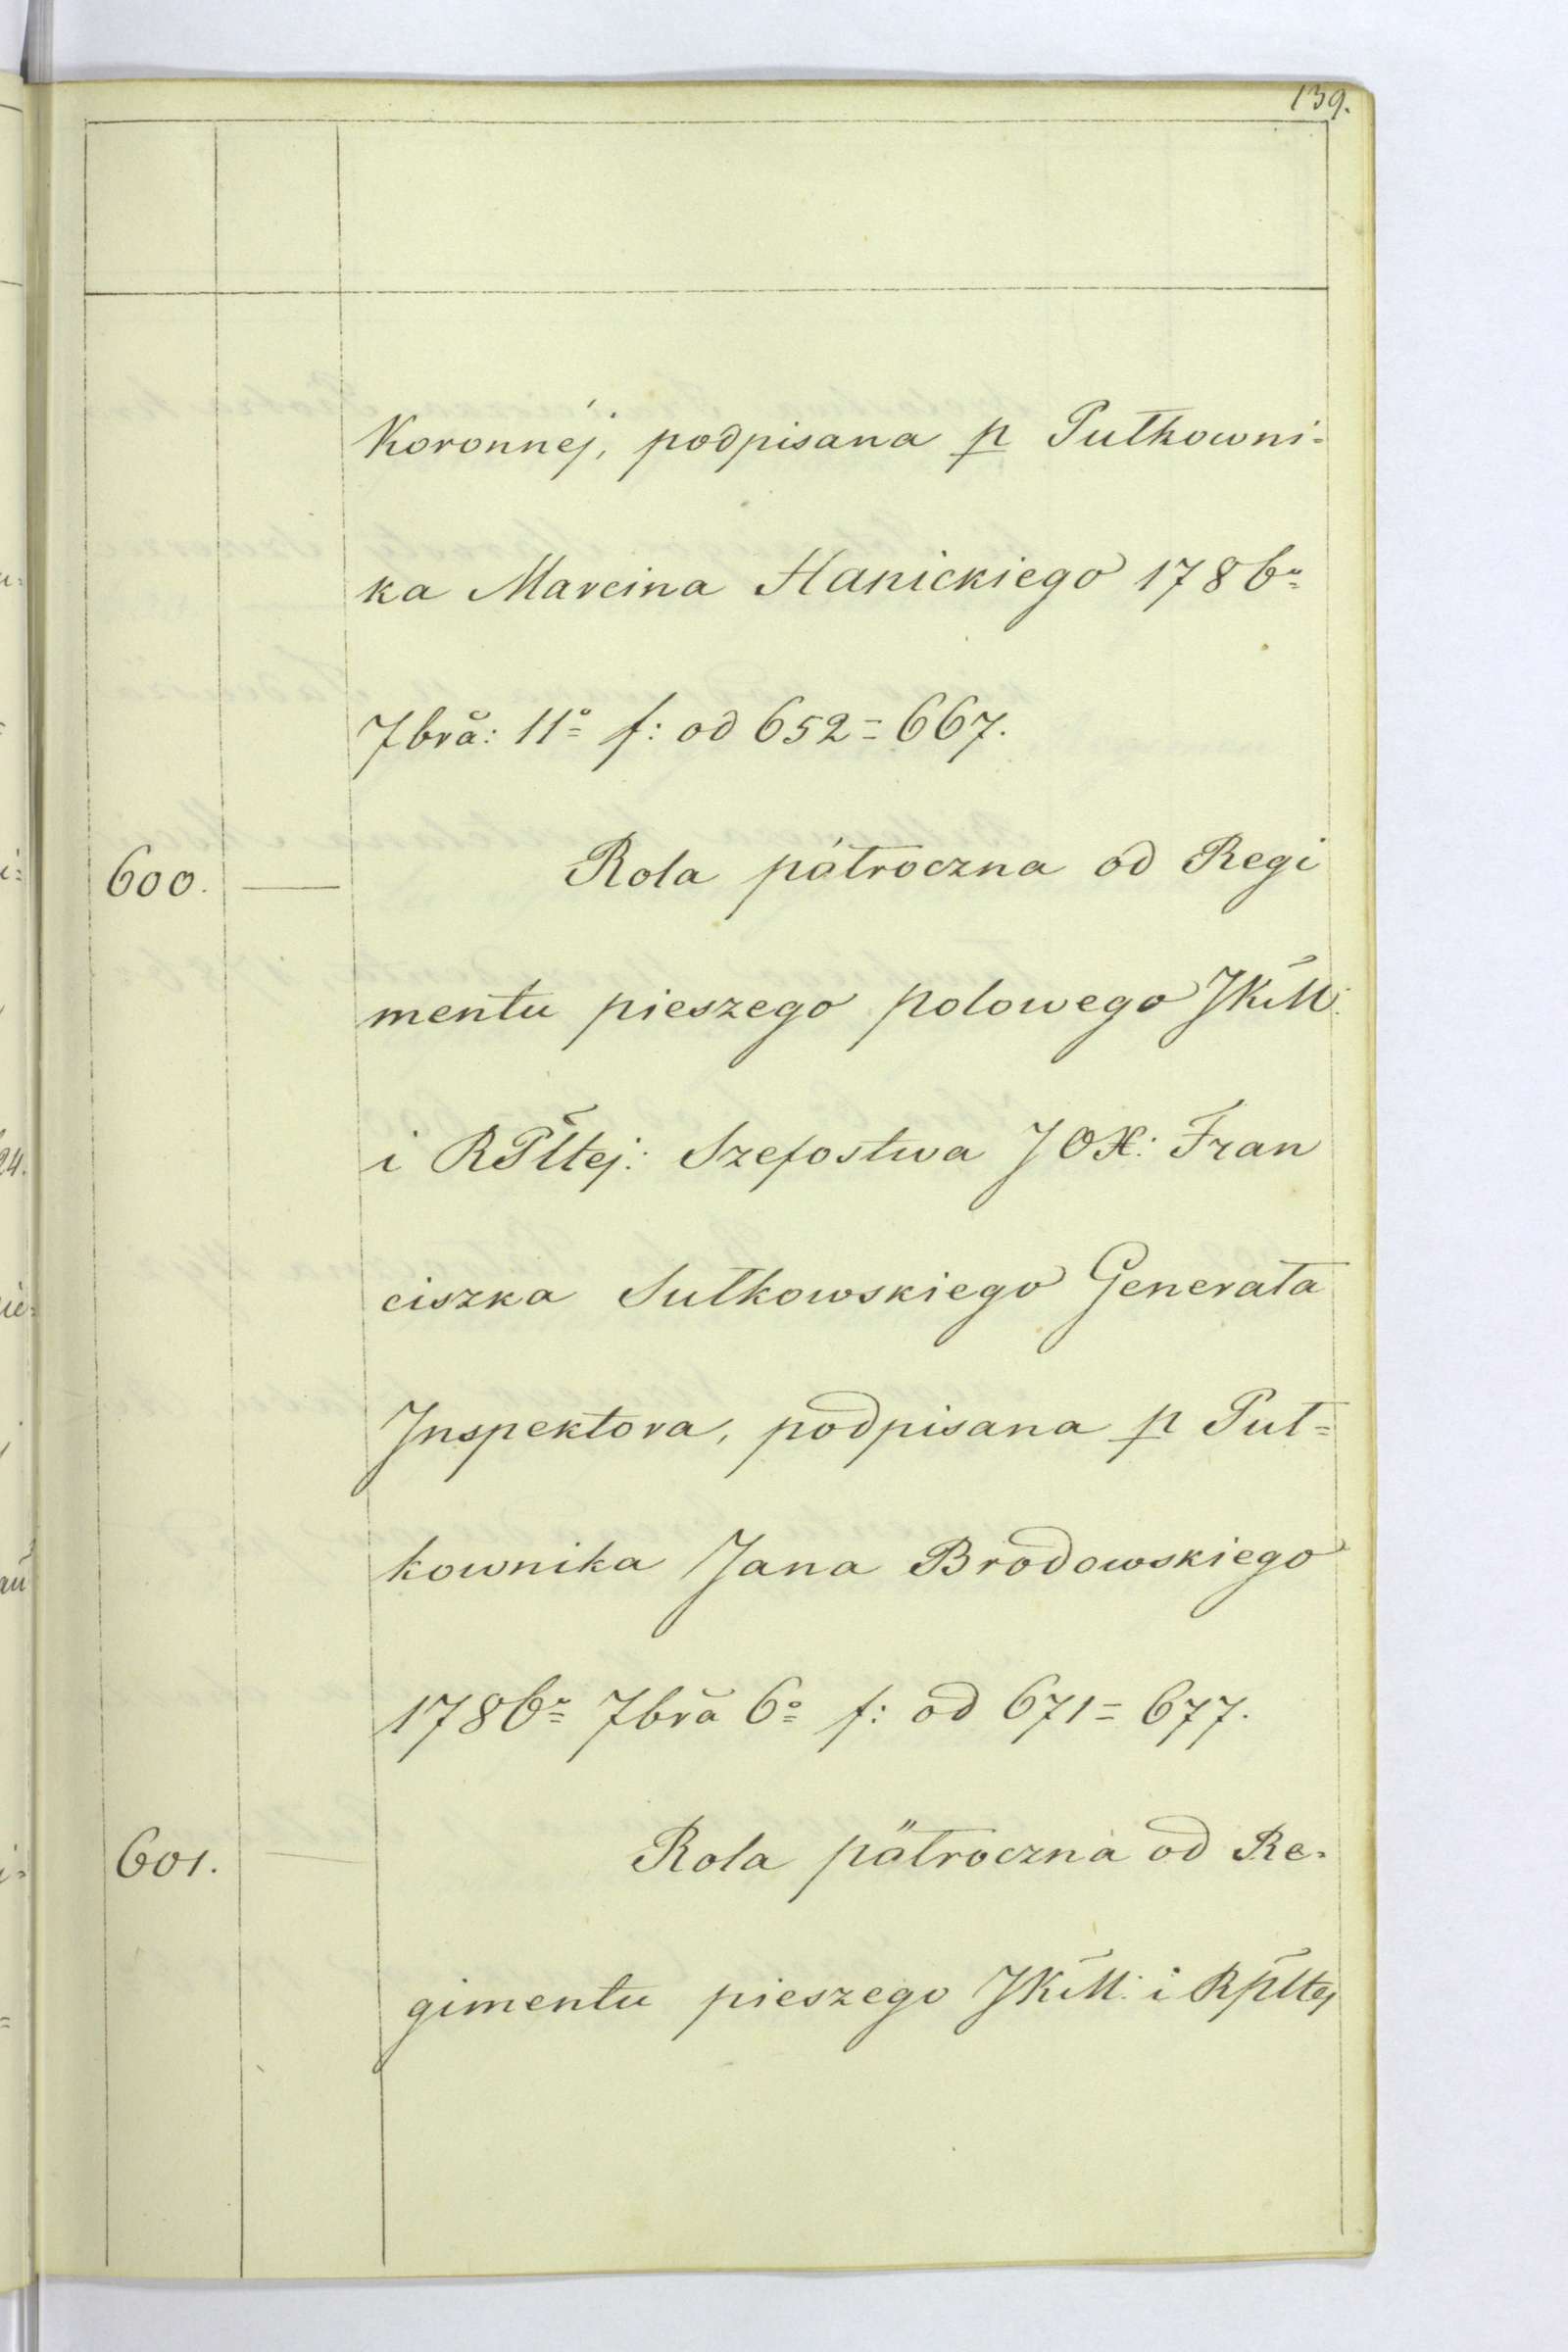 139.
Koronnéj, podpisana p Pułkowni=
ka Marcina Hanickiego 1786°
7bra: 11° f: od 652=667.
600. — Rola półroczna od Regi
mentu pieszego polowego JKM:
i RPltej: Szefostwa JOX: Fran
ciszka Sułkowskiego Generała
Inspektora, podpisana p Puł=
kownika Jana Brodowskiego
1786° 7bra 6° f: od 671=677.
601. — Rola półroczna od Re=
gimentu pieszego JKM: i Rpltej